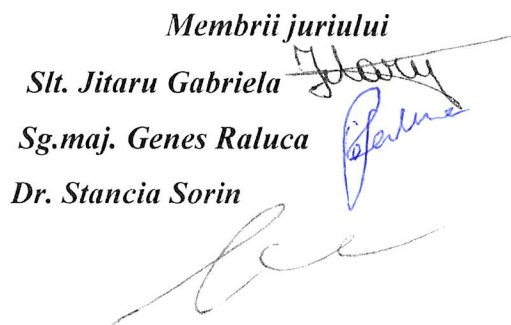 Membrii juriului
Slt. Jitaru Gabriela
Sg.maj. Genes Raluca
Dr. Stancia Sorin